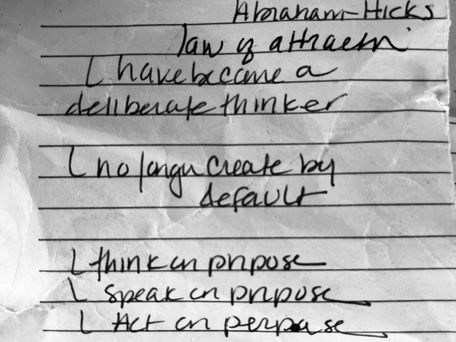 Abraham-Hicks
law of attraction
I have become a
deliberate thinker
I no longer create by
default
I think on purpose
I speak on purpose
I Act on perpase